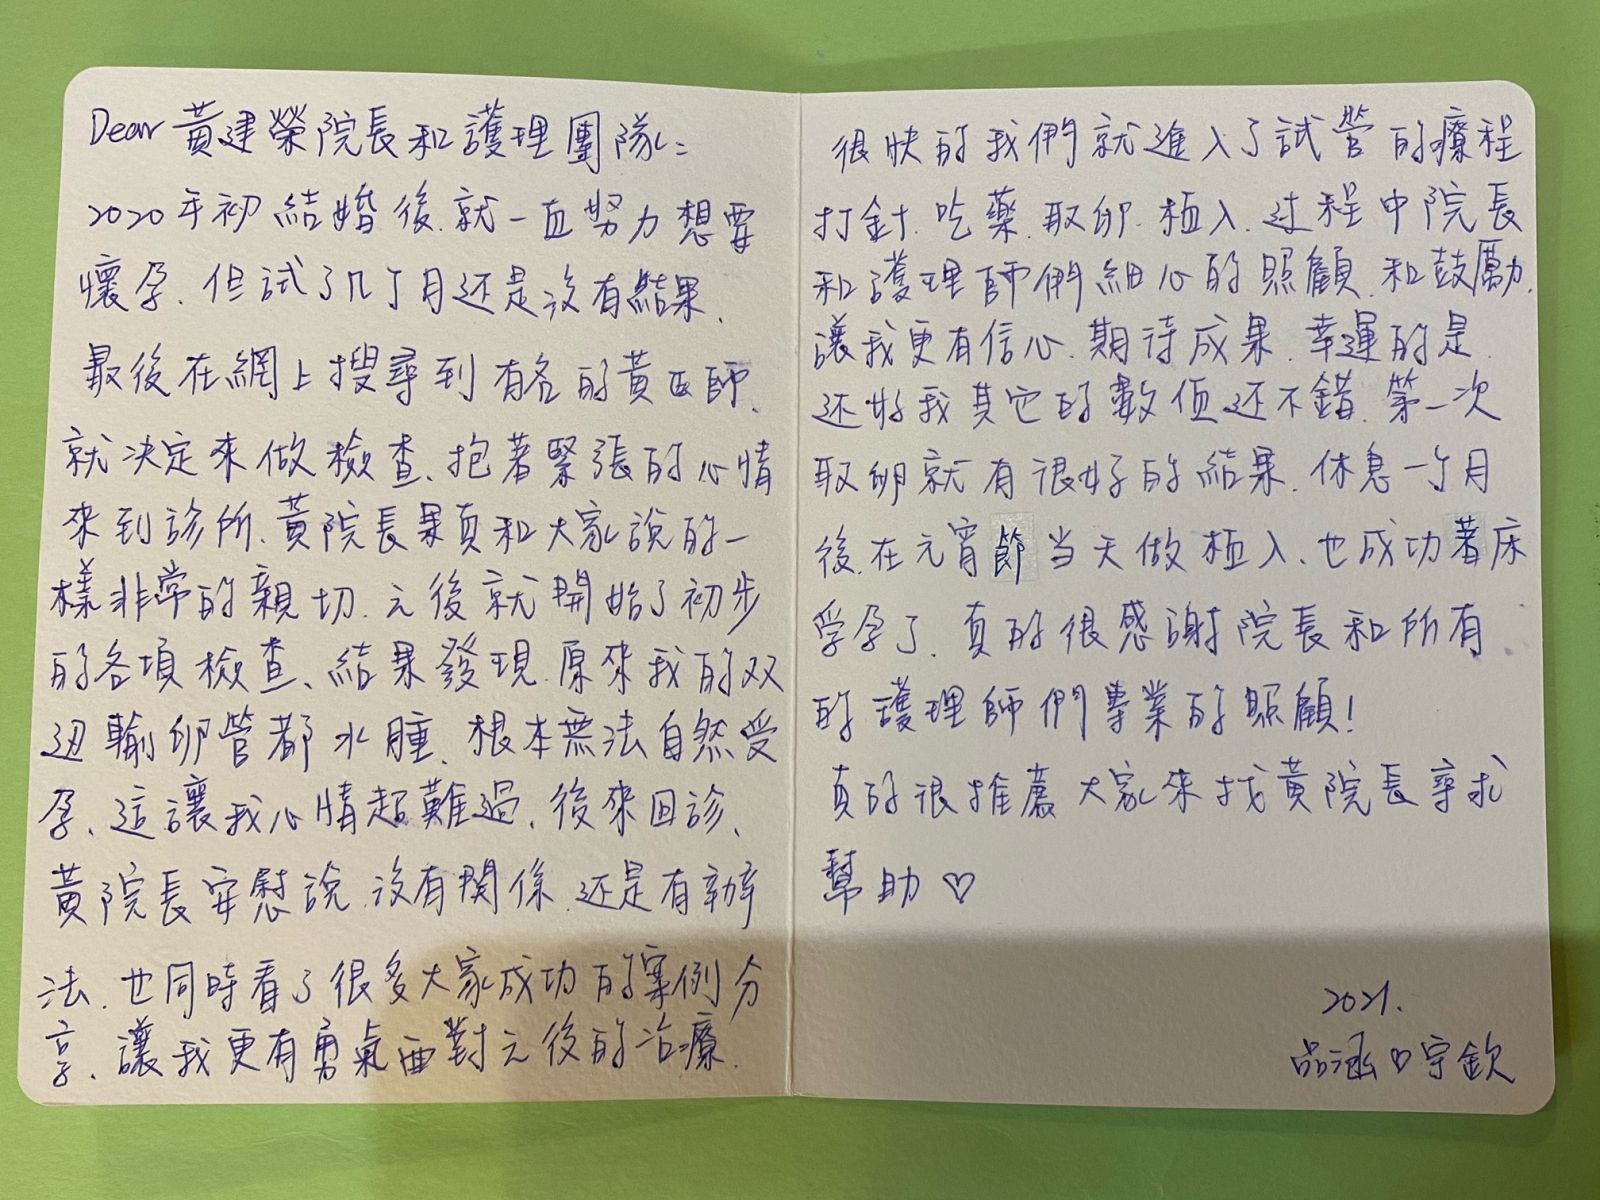 Dear 黃建榮院長和護理團隊：
2020年初結婚後.就一直努力想要
懷孕.但試了几個月还是沒有結果.
最後在網上搜尋到有名的黃医師.
就决定來做檢查、抱著緊張的心情
來到診所.黃院長果真和大家說的一
樣非常的親切.之後就開始了初步
的各項檢查、結果發現.原來我的双
边輸卵管都水腫.根本無法自然受
孕、這讓我心情超難過.後來回診、
黃院長安慰說.沒有関係.还是有辦
法.也同時看了很多大家成功的案例分
享、讓我更有勇氣面對之後的治療.
很快的我們就進入了試管的療程
打針.吃藥.取卵.植入.过程中院長
和護理師們細心的照顧.和鼓勵.
讓我更有信心.期待成果.幸運的是.
还好我其它的數值还不錯.第一次
取卵就有很好的結果.休息一個月
後.在元宵節當天做植入、也成功著床
受孕了.真的很感謝院長和所有
的護理師們專業的照顧！
真的很推薦大家來找黃院長尋求
幫助♡
2021.
品涵♡宇欽